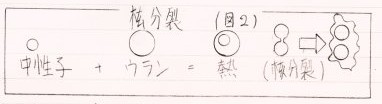 核分裂 (図2)
中性子 + ウラン = 熱 (核分裂)